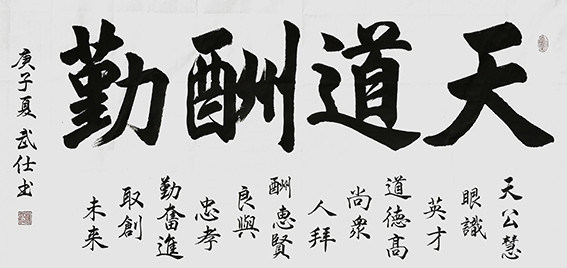 天道酬勤
天公慧
眼識
英才
道德高
尚衆
人拜
酬惠賢
良與
忠孝
勤奮進
取創
未来
庚子夏武仕书